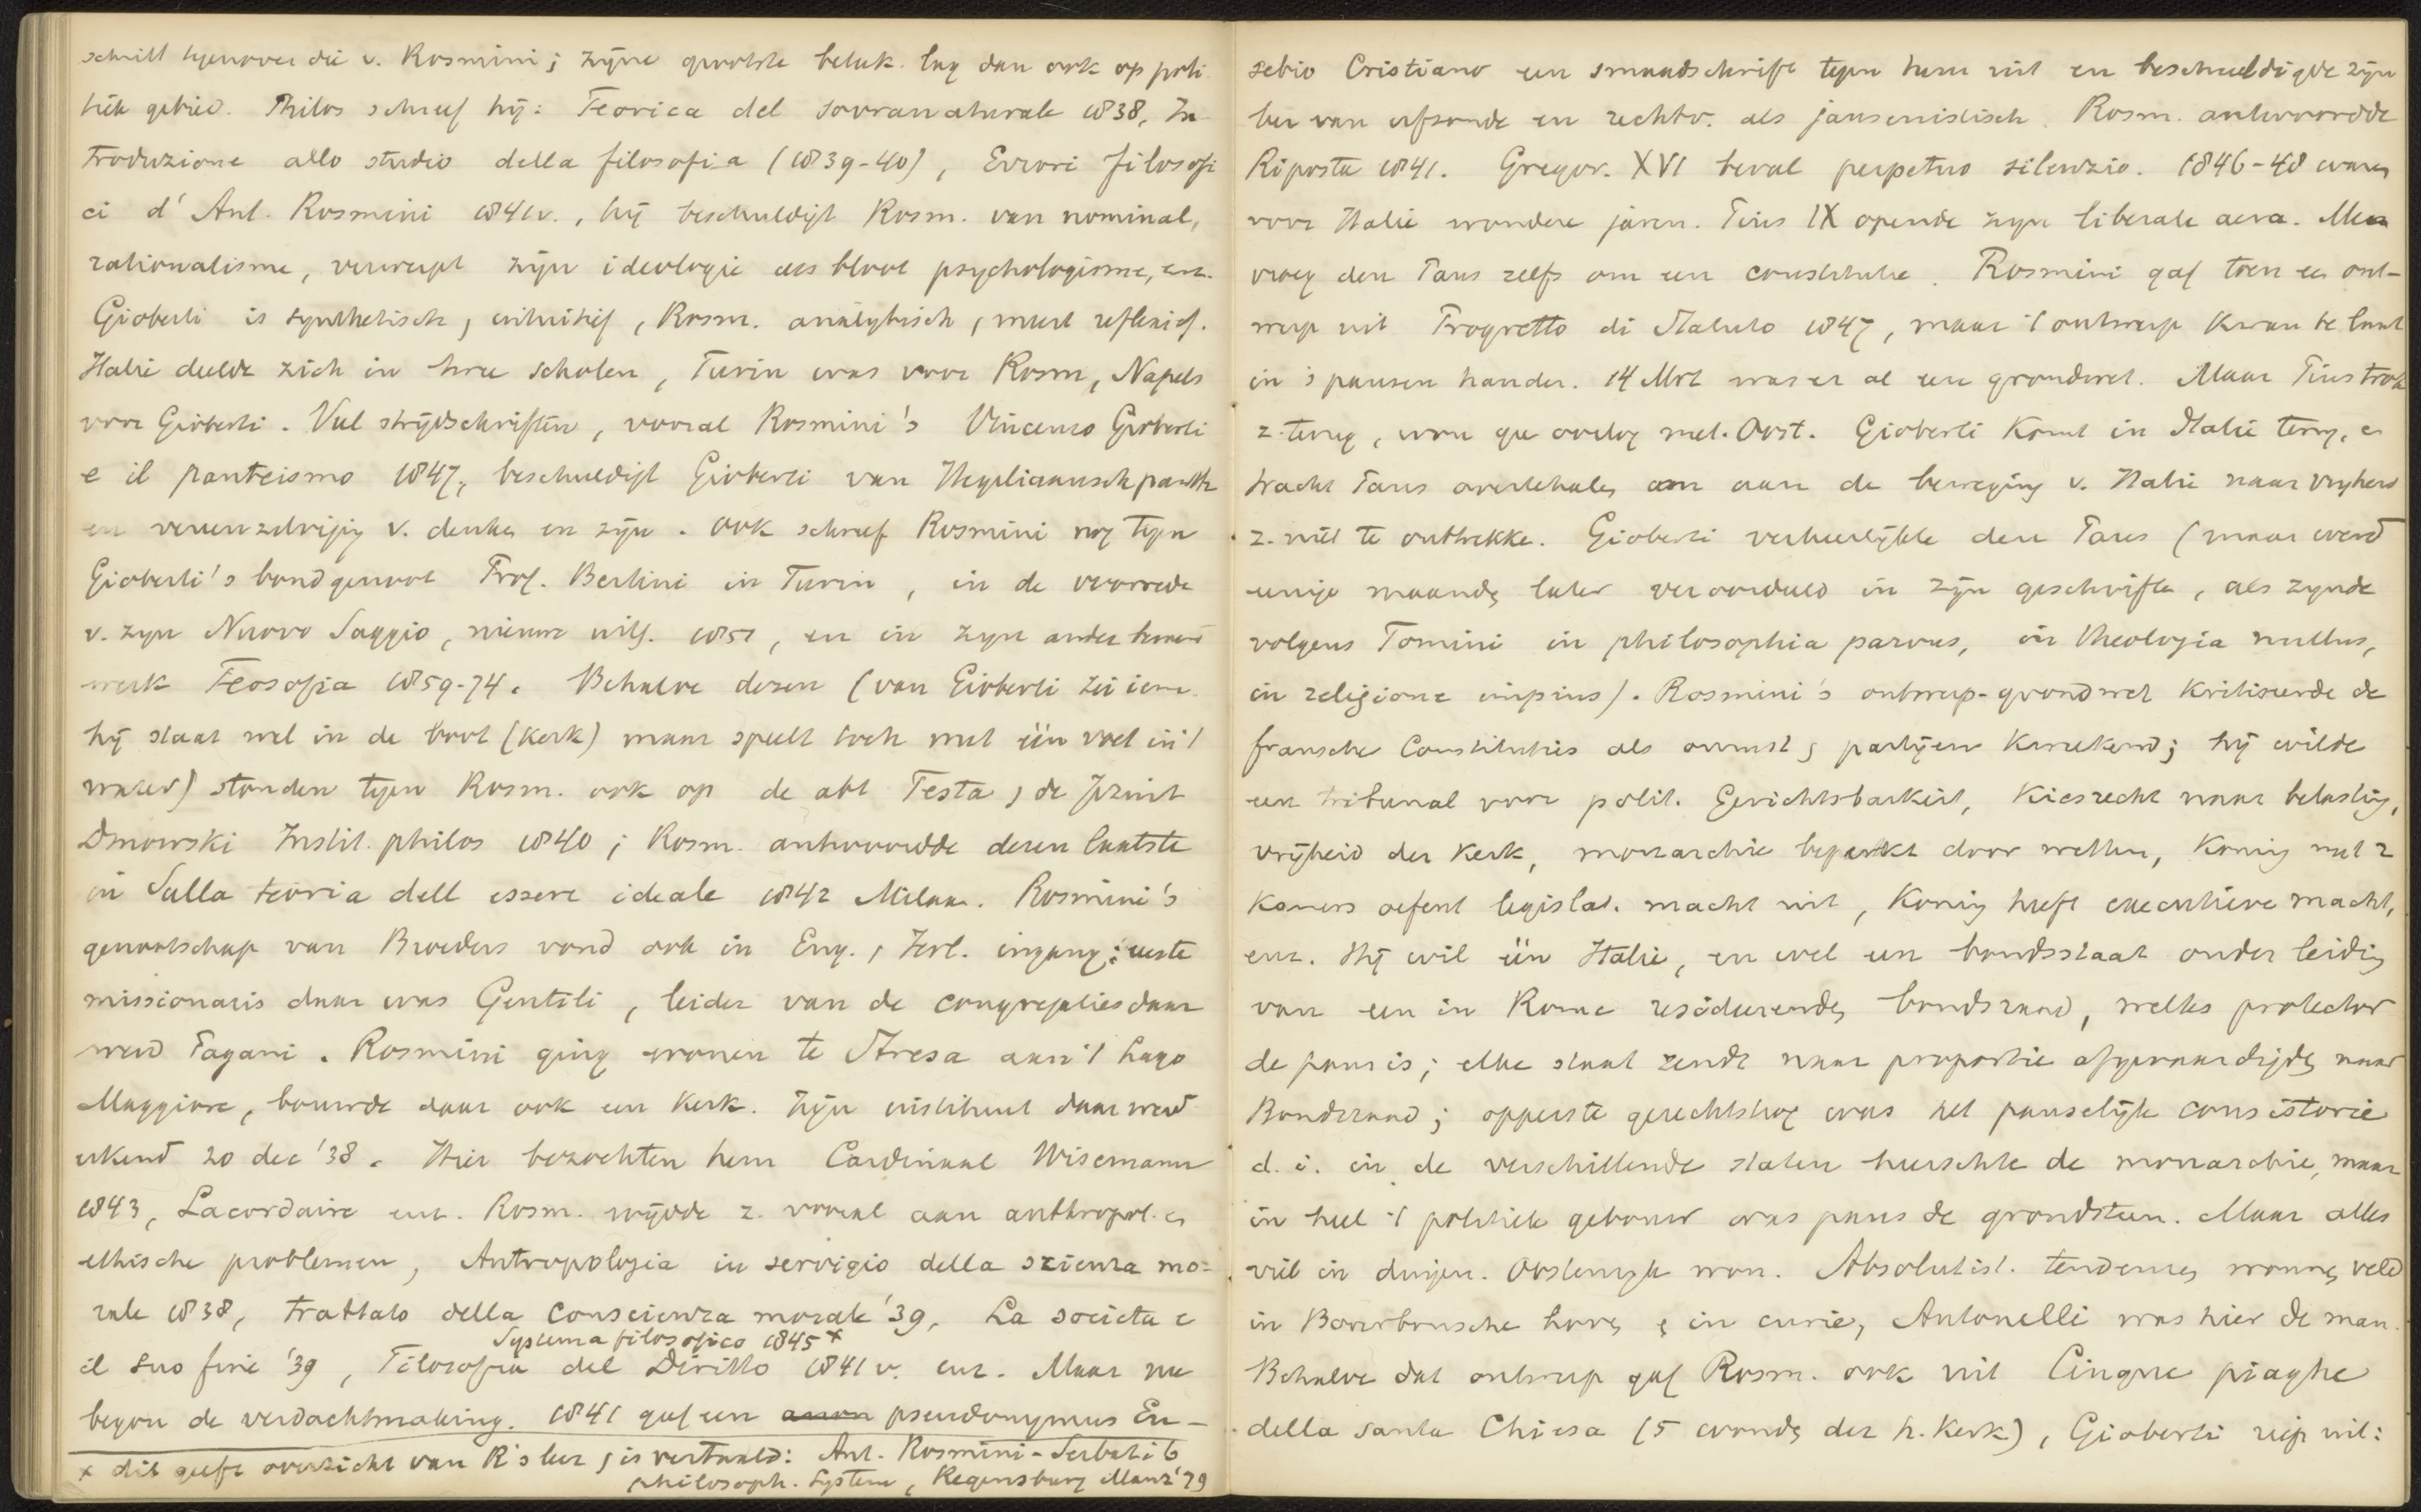 schrift tegenover die v. Rosmini; zijne grootste betek. lag dan ook op poli
tiek gebied. Philos schreef hij: Teorica del sovranaturale 1838, In
troduzione allo studio della filosofia (1839-40), Errori filosofi
ci d' Ant. Rosmini 1841 v., hij beschuldigt Rosm. van nominal,
rationalisme, verwerpt zijn ideologie als bloot psychologisme, enz.
Gioberti is synthetisch, intuitief, Rosm. analytisch, meest reflexief.
Italie deelde zich in twee scholen, Turin was voor Rosm, Napels
voor Gioberti. Veel strijdschriften, vooral Rosmini's Vincenzo Gioberti
e il panteismo 1847, beschuldigt Gioberti van Hegeliaansch panth
en vereenzelviging v. denken en zijn. Ook schreef Rosmini nog tegen
Gioberti's bondgenoot Prof. Bertini in Turin, in de voorrede
v. zijn Nuovo Saggio, nieuwe uitg. 1851, en in zijn ander
werk Teosofia 1859-74. Behalve dezen (van Gioberti zei iem.
hij staat wel in de boot (kerk) maar speelt toch met één voet in 't
water) stonden tegen Rosm. ook op de abt Testa, de Jezuit
Dmowski Instit. philos 1840; Rosm. antwoordde dezen laatste
in Sulla teoria dell essere ideale 1842 Milaan. Rosmini's
genootschap van Broeders vond ook in Eng., Ierl. ingang; eerste
missionaris daar was Gentili, leider van de congregaties daar
werd Pagani. Rosmini ging wonen te Stresa aan 't Lago
Maggiore, bouwde daar ook een kerk. Zijn instituut daar werd
erkend 20 dec '38. Hier bezochten hem Cardinaal Wisemann
1843, Lacordaire enz. Rosm. wijdde z. vooral aan anthropol. en
ethische problemen, Antropologia in servigio della scienza mo-
rale 1838, Trattato della Conscienza morale '39, La societa e
Systema filosofico 1845 x
il suo fine '39, Filosofia del Diritto 1841 v. enz. Maar nu
begon de verdachtmaking. 1841 gaf een anon pseudonymus Eu-
x dit geeft overzicht van R's leer, is vertaald: Ant. Rosmini-Serbati's
philosoph. System, Regensburg Manz '79
sebio Cristiano een smaadschrift tegen hem uit en beschuldigde zijn
leer van erfzonde en rechtv. als jansenistisch. Rosm. antwoordde
Riposta 1841. Gregor. XVI beval perpetuo silenzio. 1846-48 waren
voor Italie wondere jaren. Pius IX opende zijn liberale aera. Men
vroeg den Paus zelfs om een constitutie. Rosmini gaf toen en ont-
werp uit Progretto di Statuto 1847, maar 't ontwerp kwam te laat
in 's pausen handen. 14 Mrt was er al een grondwet. Maar Pius trok
z. terug, wou gee oorlog met Oost. Gioberti komt in Italie terug, en
tracht Paus overtehalen om aan de beweging v. Italie naar vrijheid
z. niet te onttrekke. Gioberti verheerlijkte den Paus (maar werd
eenige maanden later veroordeeld in zijn geschriften, als zijnde
volgens Tomini in philosophia parvus, in theologia nullus,
in religione impius). Rosmini's ontwerp-grondwet kritiseerde de
fransche Constituties als onrust, partijen kweekend; hij wilde
een tribunal voor polit. Gerichtsbarkeit, Kiesrecht naar belasting,
vrijheid der Kerk, monarchie beperkt door wetten, Koning met 2
Kamers oefent legislat. macht uit, Koning heeft executieve macht,
enz. Hij wil één Italie, en wel een bondsstaat onder leiding
van een in Rome resideerenden bondsraad, welks protector
de paus is; elke staat zendt naar proportie afgevaardigden naar
Bondsraad; opperste gerechtshof was het pauselijk consistorie
d. i. in de verschillende staten heerschte de monarchie, maar
in heel 't politiek gebouw was paus de grondsteen. Maar alles
viel in duigen. Oostenrijk won. Absolutist. tendenzen wonnen veld
in Bourbonsche hoven en in curie, Antonelli was hier de man.
Behalve dat ontwerp gaf Rosm. ook uit Cinque piaghe
della santa Chiesa (5 wonden der h. Kerk), Gioberti riep uit: